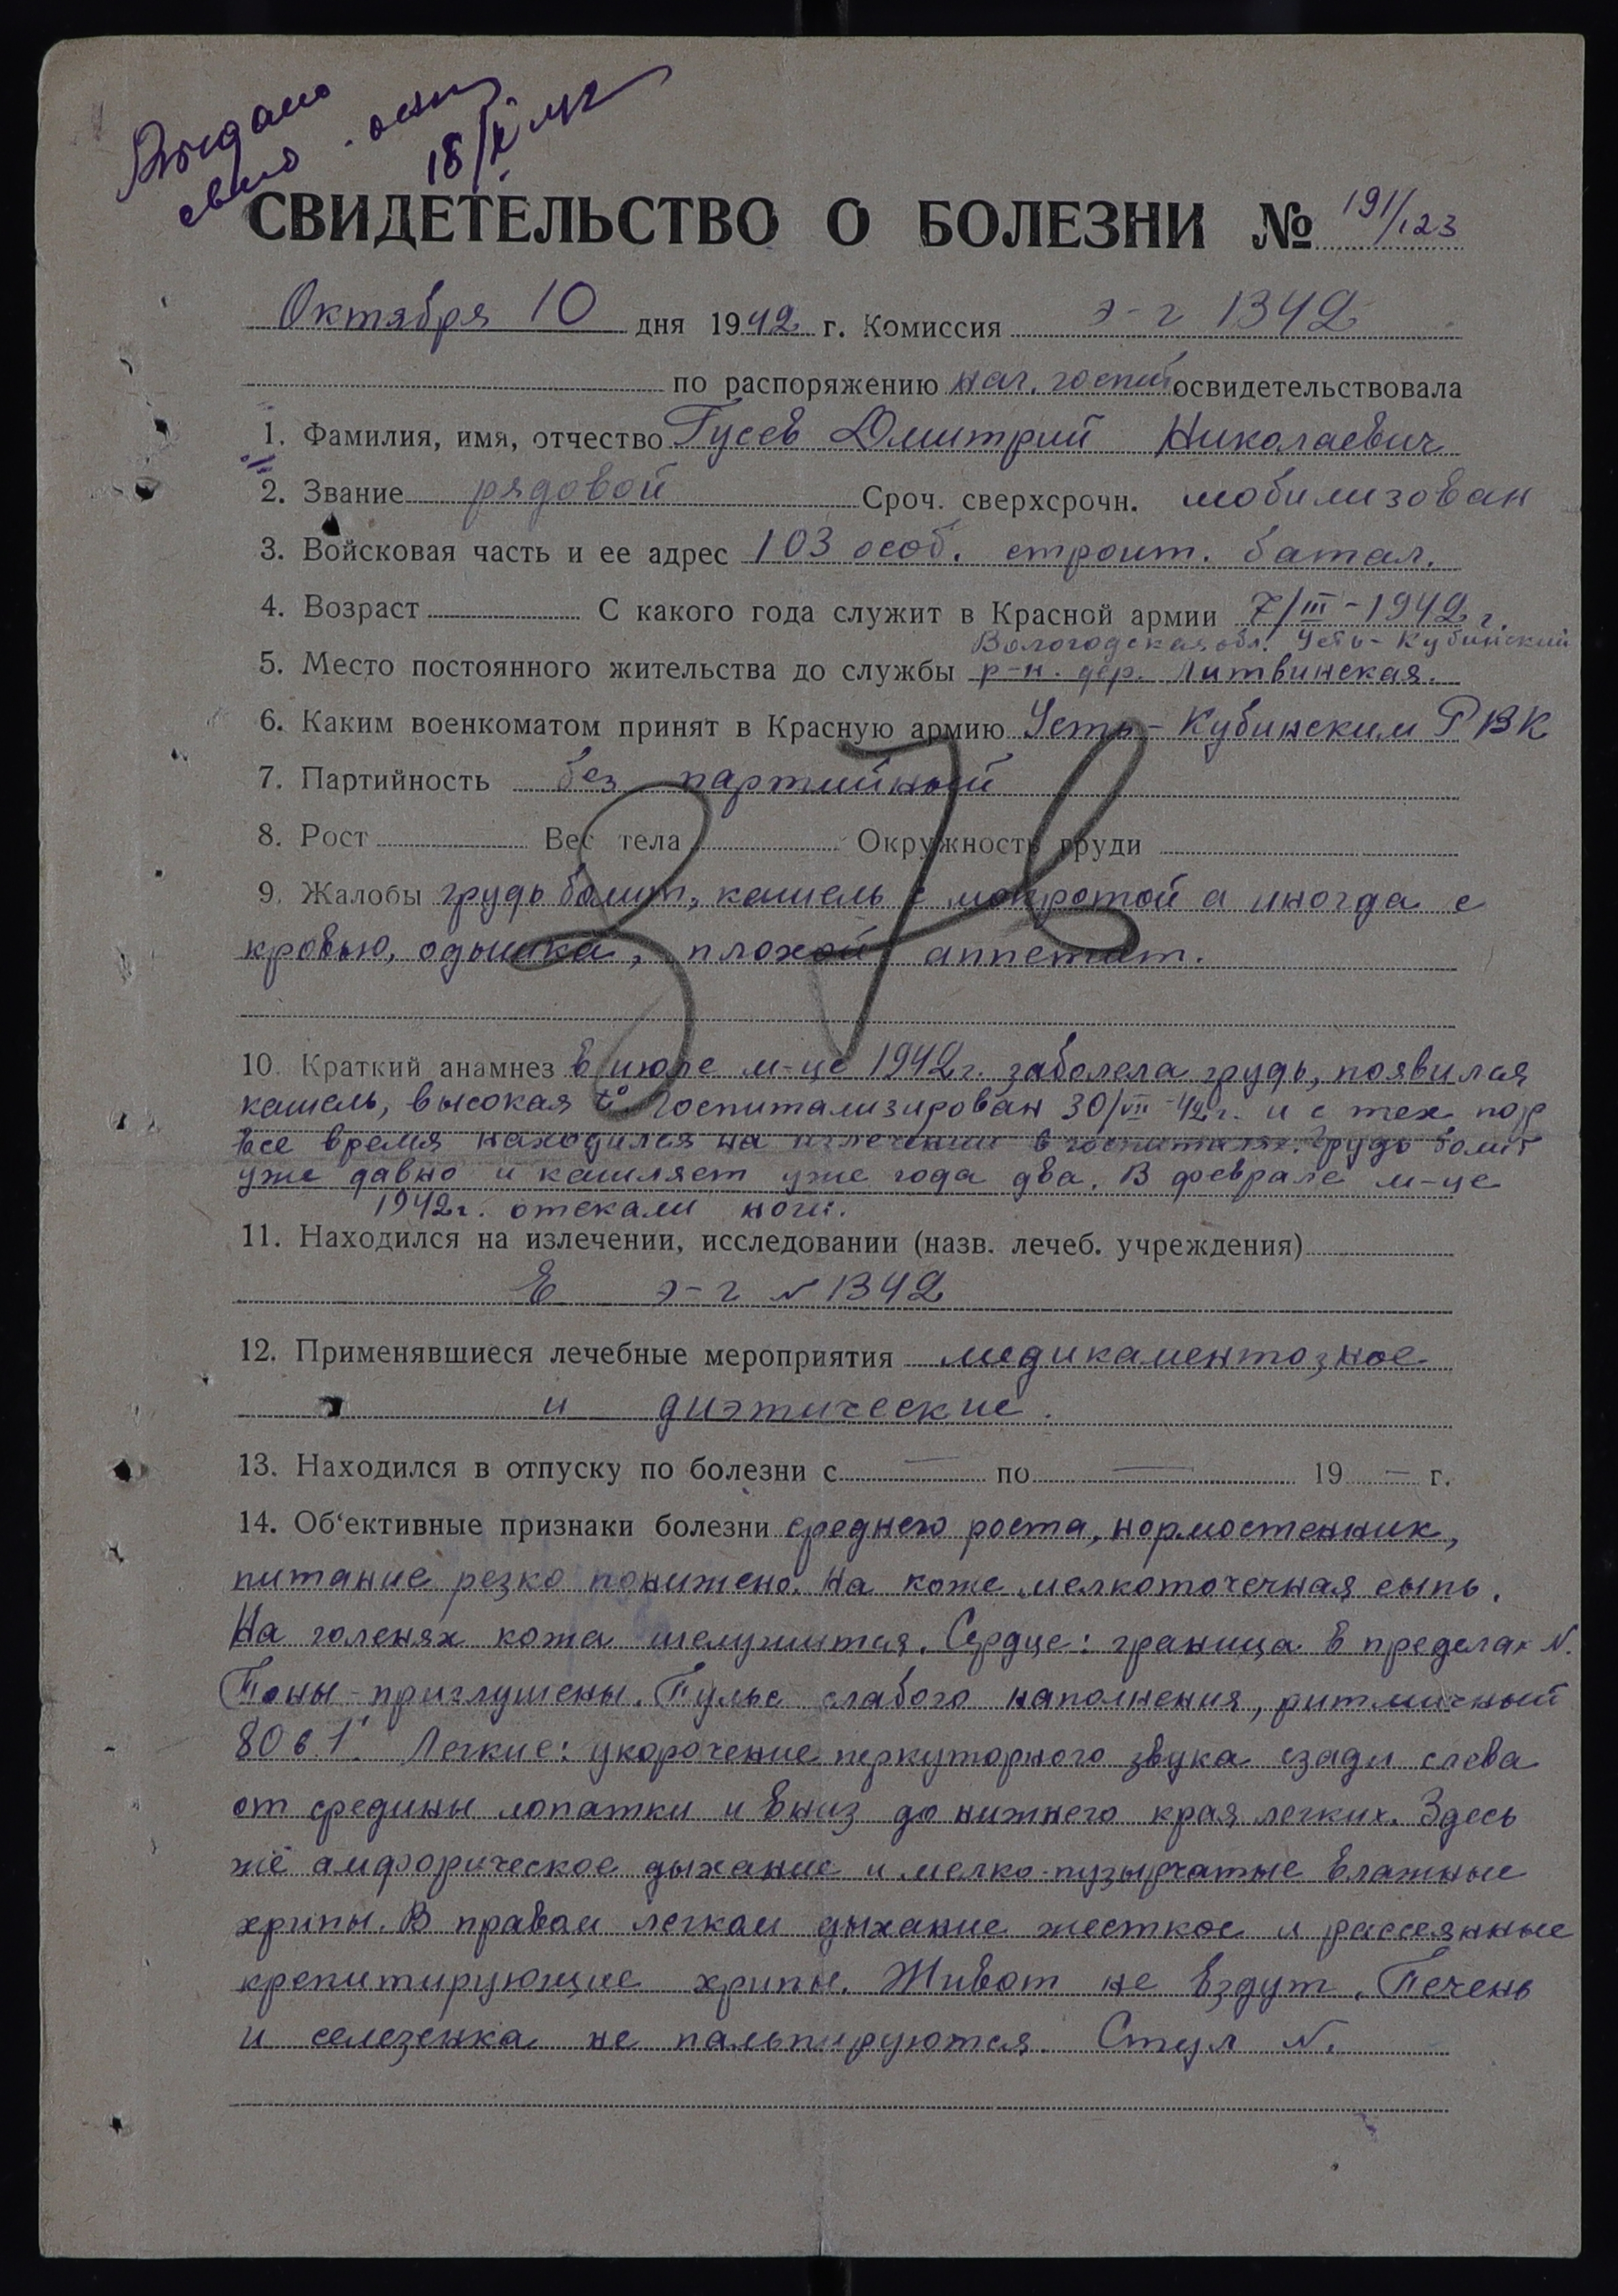 Выдано
18/X 42
СВИДЕТЕЛЬСТВО О БОЛЕЗНИ № 191/123
Октября 10 дня 1942 г. Комиссия э-г 1342
по распоряжению нач. госпит освидетельствовала
1. Фамилия, имя, отчество Гусев Дмитрий Николаевич
2. Звание рядовой Сроч. сверхсрочн. мобилизован
3. Войсковая часть и ее адрес 103 особ. строит. батал.
4. Возраст С какого года служит в Красной армии 7/III-1942 г.
Вологодская обл. Усть-Кубинский
5. Место постоянного жительства до службы р-н. дер. Литвинская.
6. Каким военкоматом принят в Красную армию Усть-Кубинским РВК
7. Партийность без партийный
8. Рост Вес тела Окружность груди
9. Жалобы грудь болит, кашель с мокротой а иногда с
кровью, одышка, плохой аппетит.
10. Краткий анамнез в июле м-це 1942 г. заболела грудь, появился
кашель, высокая t° Госпитализирован 30/VII-42 г. и с тех пор
все время находился на излечении в госпиталях. Грудь болит
уже давно и кашляет уже года два. В феврале м-це
1942 г. отекали ноги.
11. Находился на излечении, исследовании (назв. лечеб. учреждения)
В э-г № 1342
12. Применявшиеся лечебные мероприятия медикаментозное
и диэтические.
13. Находился в отпуску по болезни с — по — 19 — г.
14. Об‘ективные признаки болезни среднего роста, нормостенник,
питание резко понижено. На коже мелкоточечная сыпь.
На голенях кожа шелушится. Сердце: граница в пределах N.
Тоны приглушены. Пульс слабого наполнения, ритмичный
80 в 1'. Легкие: укорочение перкуторного звука сзади слева
от средины лопатки и вниз до нижнего края легких. Здесь
же амфорическое дыхание и мелко-пузырчатые влажные
хрипы. В правом легком дыхание жесткое и рассеянные
крепитирующие хрипы. Живот не вздут. Печень
и селезенка не пальпируются. Стул N.